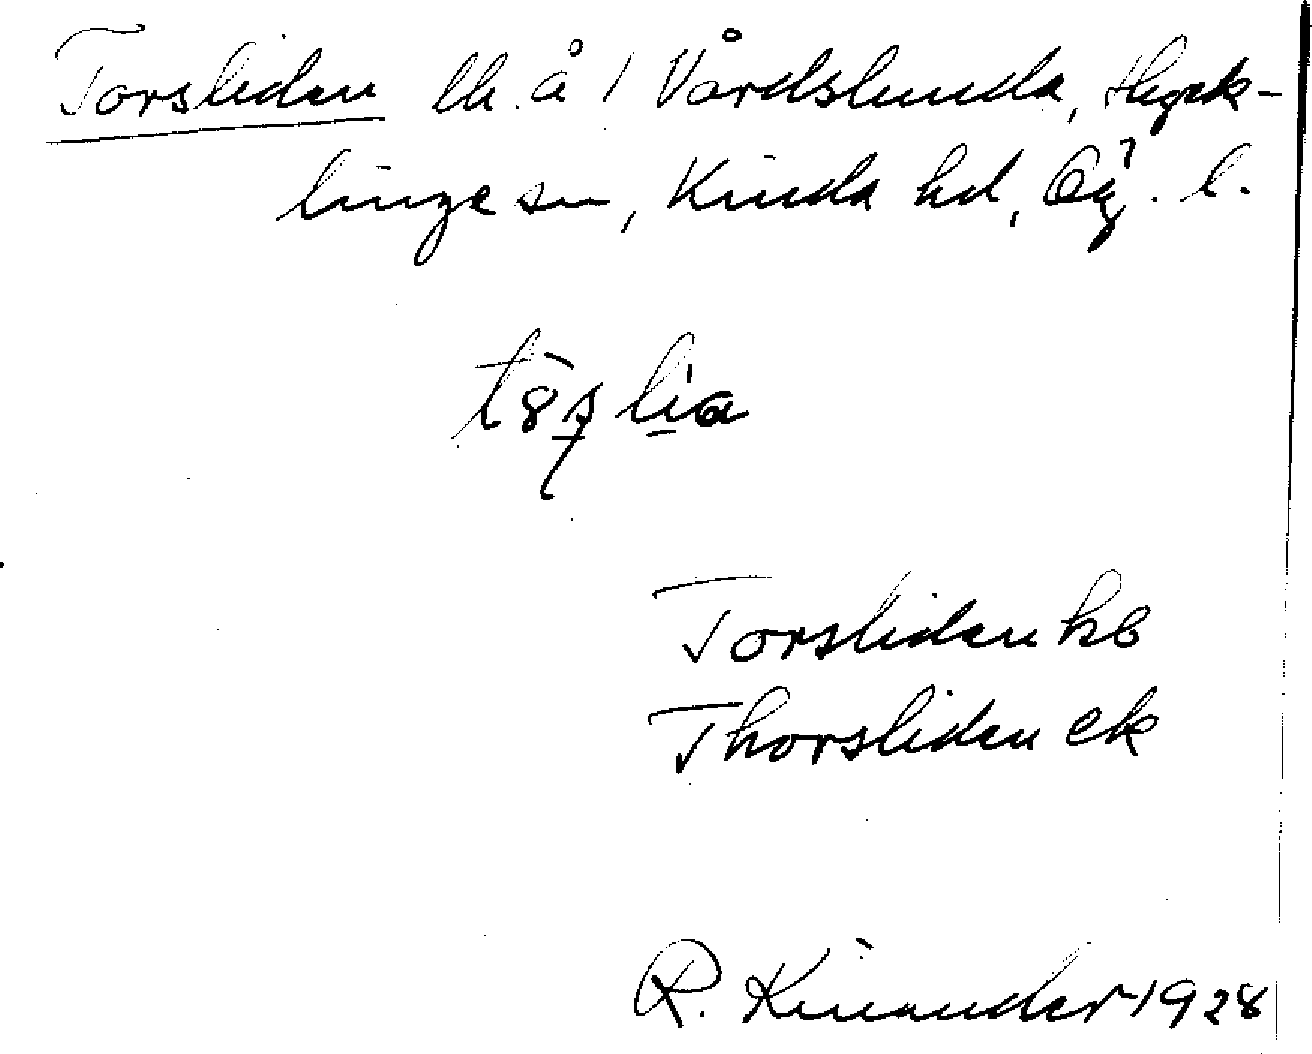 Torsliden lh. å 1 Vårdslunda, Hyck-
linge sn, Kinda hd, Ög. l.
Torsliden hb
Thorsliden ek
R. Kinander 1928